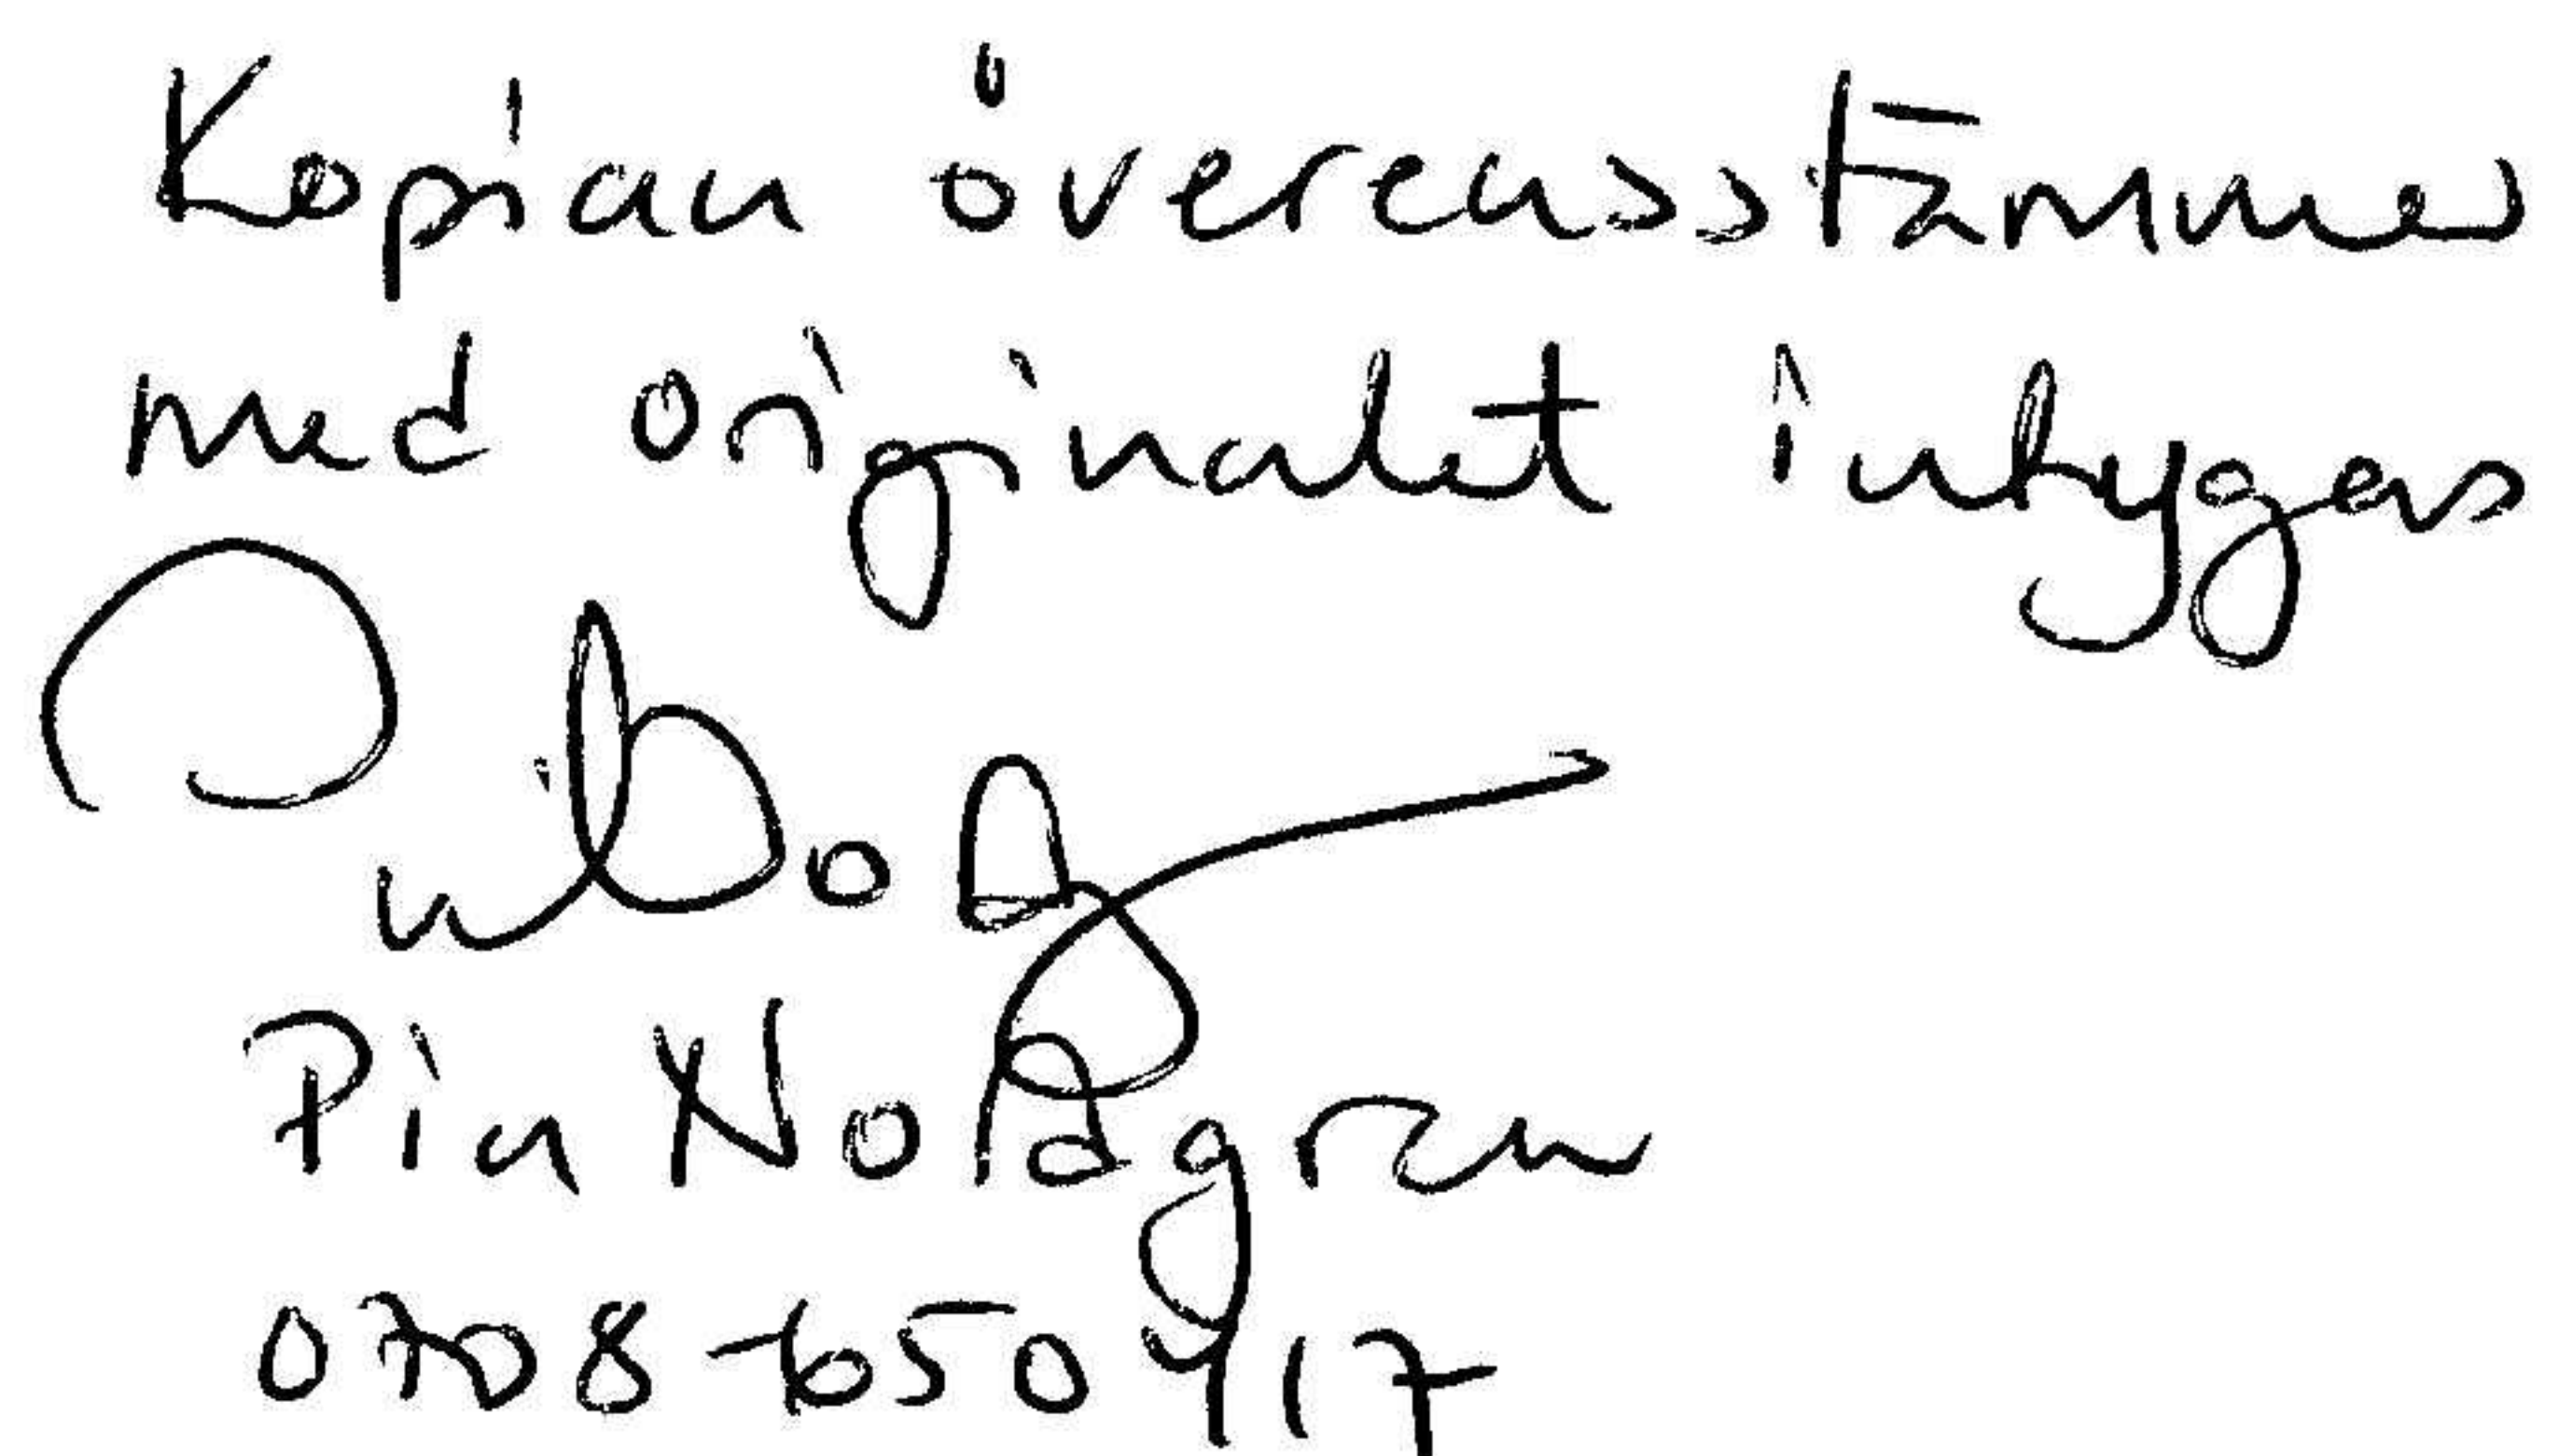 Kopian överensstämmer
med originalet intygas
Pia Nordgren
0708-650417